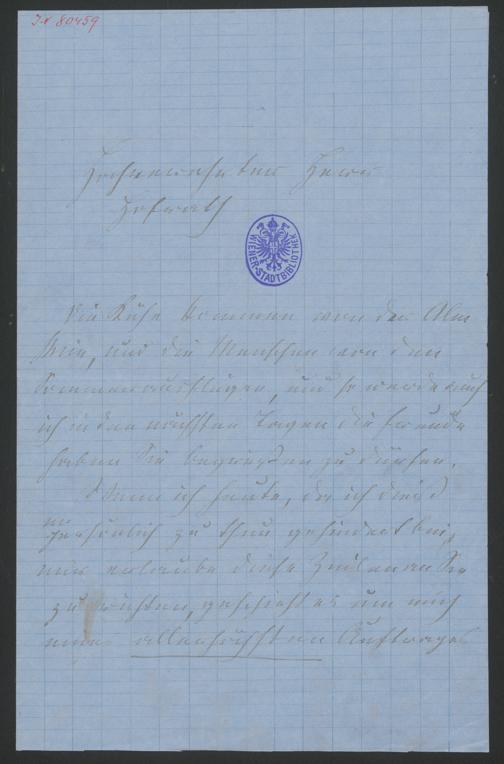 J.N 80459
Hochverehrter Herr
Hofrath
WIENER-STADTBIBLIOTHEK
Die Kühe kommen von der Alm
heim, und die Menschen von den
Sommerausflügen, und so werde auch
ich in den nächsten Tagen die Freude
haben Sie begrüßen zu dürfen.
Wenn ich heute, da ich dieß
persönlich zu thun gehindert bin,
mir erlaube diese Zeilen an Sie
zu richten, geschieht es um mich
eines allerhöchsten Auftrages